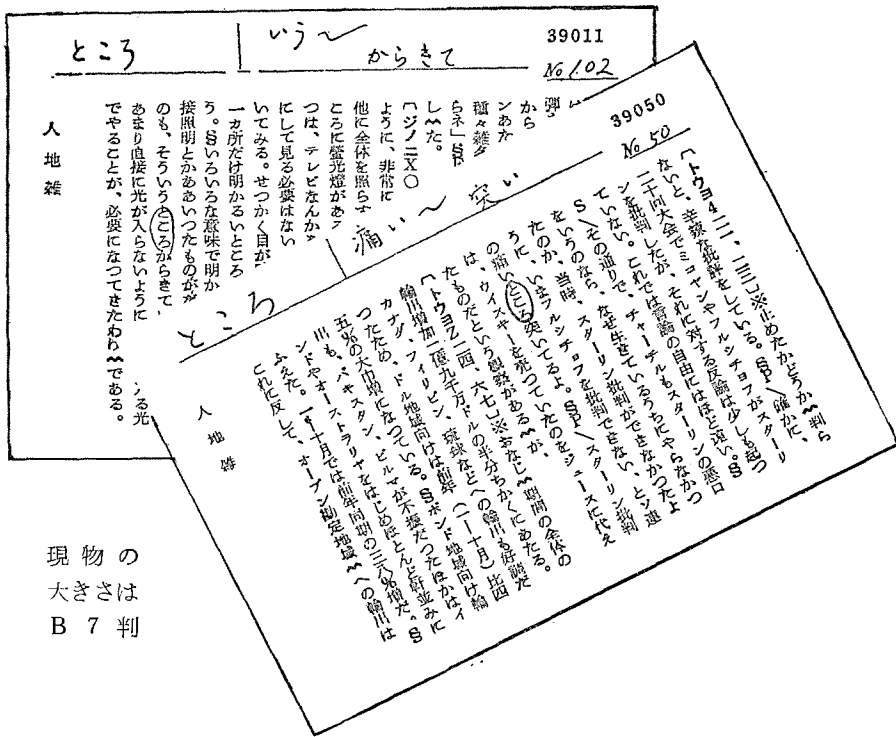 ところ
いう〜
からきて
39011
No 1.02
弾
から
ンあた
種々雑多
らネ」SP
し〰た。
〔ジノ二X〇
ように、非常に
他に全体を照らす
ころに螢光燈があ
つは、テレビなんか
にして見る必要はない
いてみる。せつかく目が
一カ所だけ明かるいところ
う。Sいろいろな意味で明か
接照明とかああいつたものがが
のも、そういうところからきて
あまり直接に光が入らないように る光
でやることが、必要になつてきたわけ〰である。
人地雑
ところ
痛い〜 突い
39050
No 50
〔トウヨ4二一、一三〕※止めたかどうか〰判ら
ないと、辛辣な批評をしている。SP/確かに、
二十回大会でミコヤンやフルシチョフがスターリ
ンを批判したが、それに対する反論は少しも起つ
ていない。これでは言論の自由にはほど遠い。S
S/その通りで、チャーチルもスターリンの悪口
をいうのなら、なぜ生きているうちにやらなかつ
たのか、当時、スターリン批判ができなかつたよ
うに、いまフルシチョフを批判できない、とソ連
の痛いところ突いてるよ。SP/スターリン批判
は、ウイスキーを売つていたのをジュースに代え
たものだという観察がある〰が、
〔トウヨ乙一四、六七〕※おなじ〰期間の全体の
輸出増加二億九千万ドルの半分ちかくにあたる。
カナダ、フィリピン、琉球などへの輸出も好調だ
つたため、ドル地域向けは前年(一―十月)比四
五%の大巾増になつている。Sポンド地域向け輸
出も、パキスタン、ビルマが不振だつたほかはイ
ンドやオーストラリヤをはじめほとんど軒並みに
ふえた。一―十月では前年同期の三八%増だ。S
これに反して、オープン勘定地域〰への輸出は
人地雑
現物の
大きさは
B7判